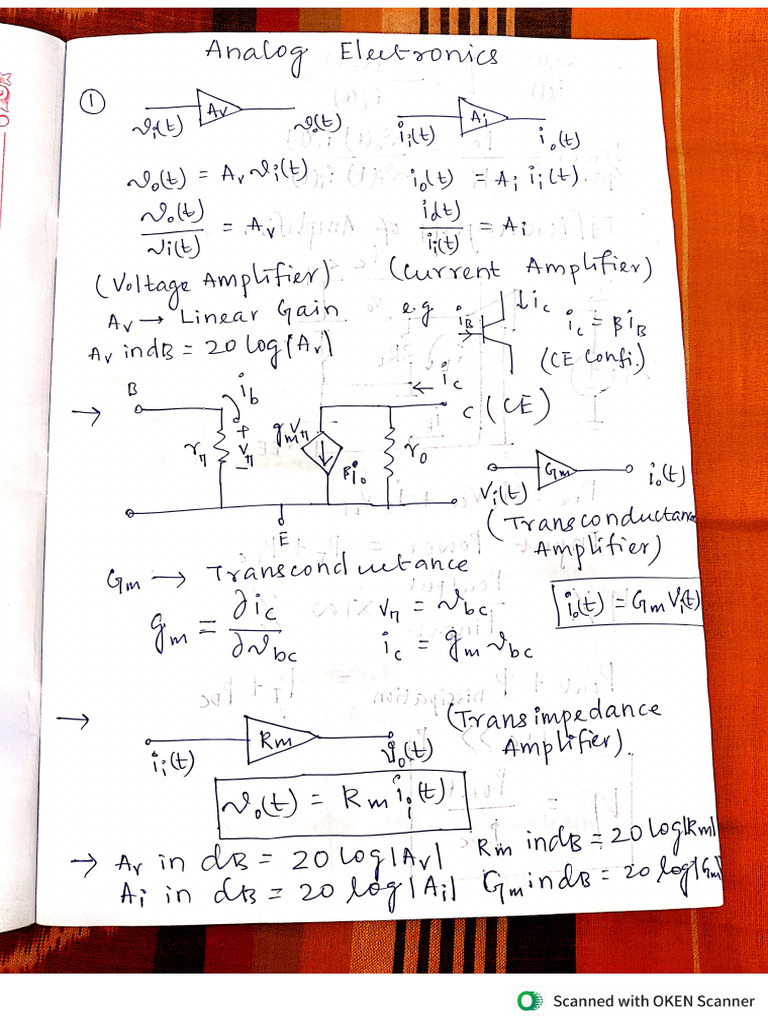 Analog Electronics
① Av Ai
vi(t) vo(t) ii(t) io(t)
vo(t) = Av vi(t) io(t) = Ai ii(t).
vo(t)/vi(t) = Av io(t)/ii(t) = Ai
(Voltage Amplifier) (Current Amplifier)
Av → Linear Gain e.g iB ↓ic ic = βiB
Av indB = 20 log|Av| (CE Confi.)
→ B ib ← ic
C (CE)
rπ + Vπ - gmVπ βio ro
E
Gm
Vi(t) io(t)
(Transconductance
Amplifier)
Gm → Transconductance
gm = ∂ic/∂vbc Vπ = vbc io(t) = Gm Vi(t)
ic = gm vbc
→ Rm (Transimpedance
ii(t) vo(t) Amplifier)
vo(t) = Rm ii(t)
→ Av in dB = 20 log|Av| Rm indB = 20 log|Rm|
Ai in dB = 20 log|Ai| Gm indB = 20 log|Gm|
Scanned with OKEN Scanner